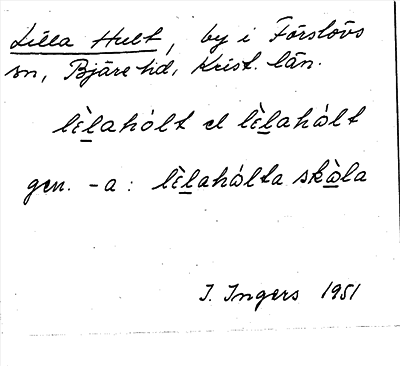 Lilla Hult, by i Förslövs
sn, Bjäre hd, Krist. län.
lèlahólt el lèlahålt
gen. -a: lèlahålta skòla
I. Ingers 1951